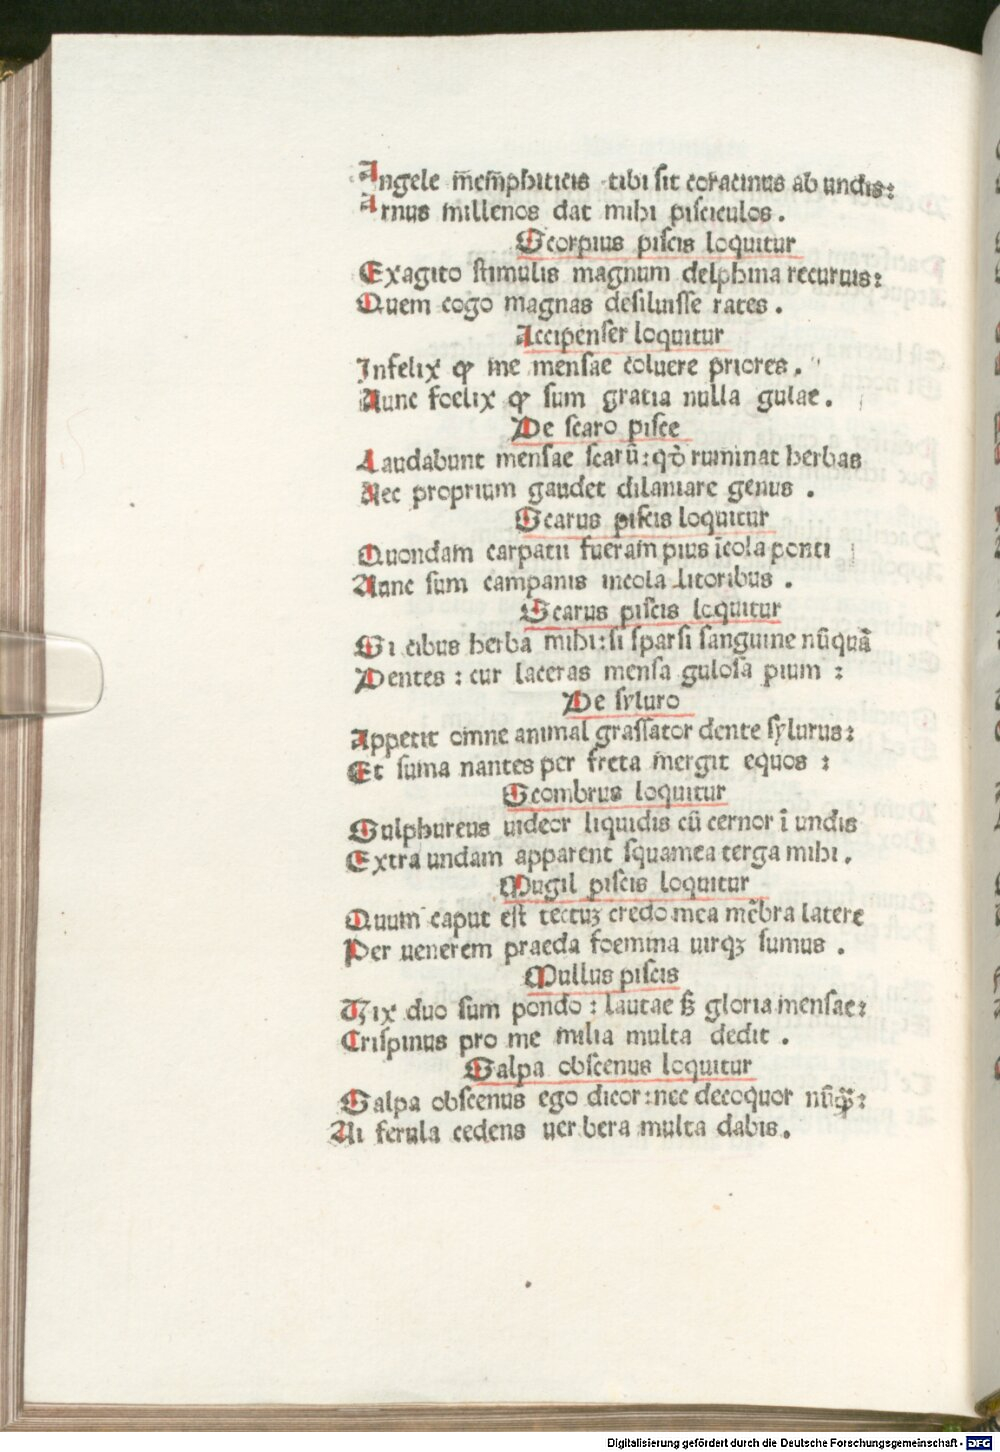 Angele m̄em̄phiticis tibi sit coracinus ab undis:
Arnus millenos dat mihi pisciculos.
Scorpius piscis loquitur
Exagito stimulis magnum delphina recuruis:
Quem cogo magnas desiluisse rates.
Accipenser loquitur
Infelix qꝫ me mensae coluere priores.
Nunc foelix qꝫ sum gratia nulla gulae.
De scaro pisce
Laudabunt mensae scarū: qḋ ruminat herbas
Nec proprium gaudet dilaniare genus.
Scarus piscis loquitur
Quondam carpatii fueram pius īcola ponti
Nunc sum campanis incola litoribus.
Scarus piscis loquitur
Si cibus herba mihi: si sparsi sanguine nūquā
Dentes: cur laceras mensa gulosa pium:
De syluro
Appetit omne animal grassator dente sylurus:
Et suma nantes per freta mergit equos:
Scombrus loquitur
Sulphureus uideor liquidis cū cernor ī undis
Extra undam apparent squamea terga mihi.
Mugil piscis loquitur
Quum caput est tectuꝫ credo mea mēbra latere
Per uenerem praeda foemina uirqꝫ sumus.
Mullus piscis
Vix duo sum pondo: lautae ß gloria mensae:
Crispinus pro me milia multa dedit.
Salpa obscenus loquitur
Salpa obscenus ego dicor: nec decoquor nūqꝫ:
Ni ferula cedens uerbera multa dabis.
Digitalisierung gefördert durch die Deutsche Forschungsgemeinschaft - DFG